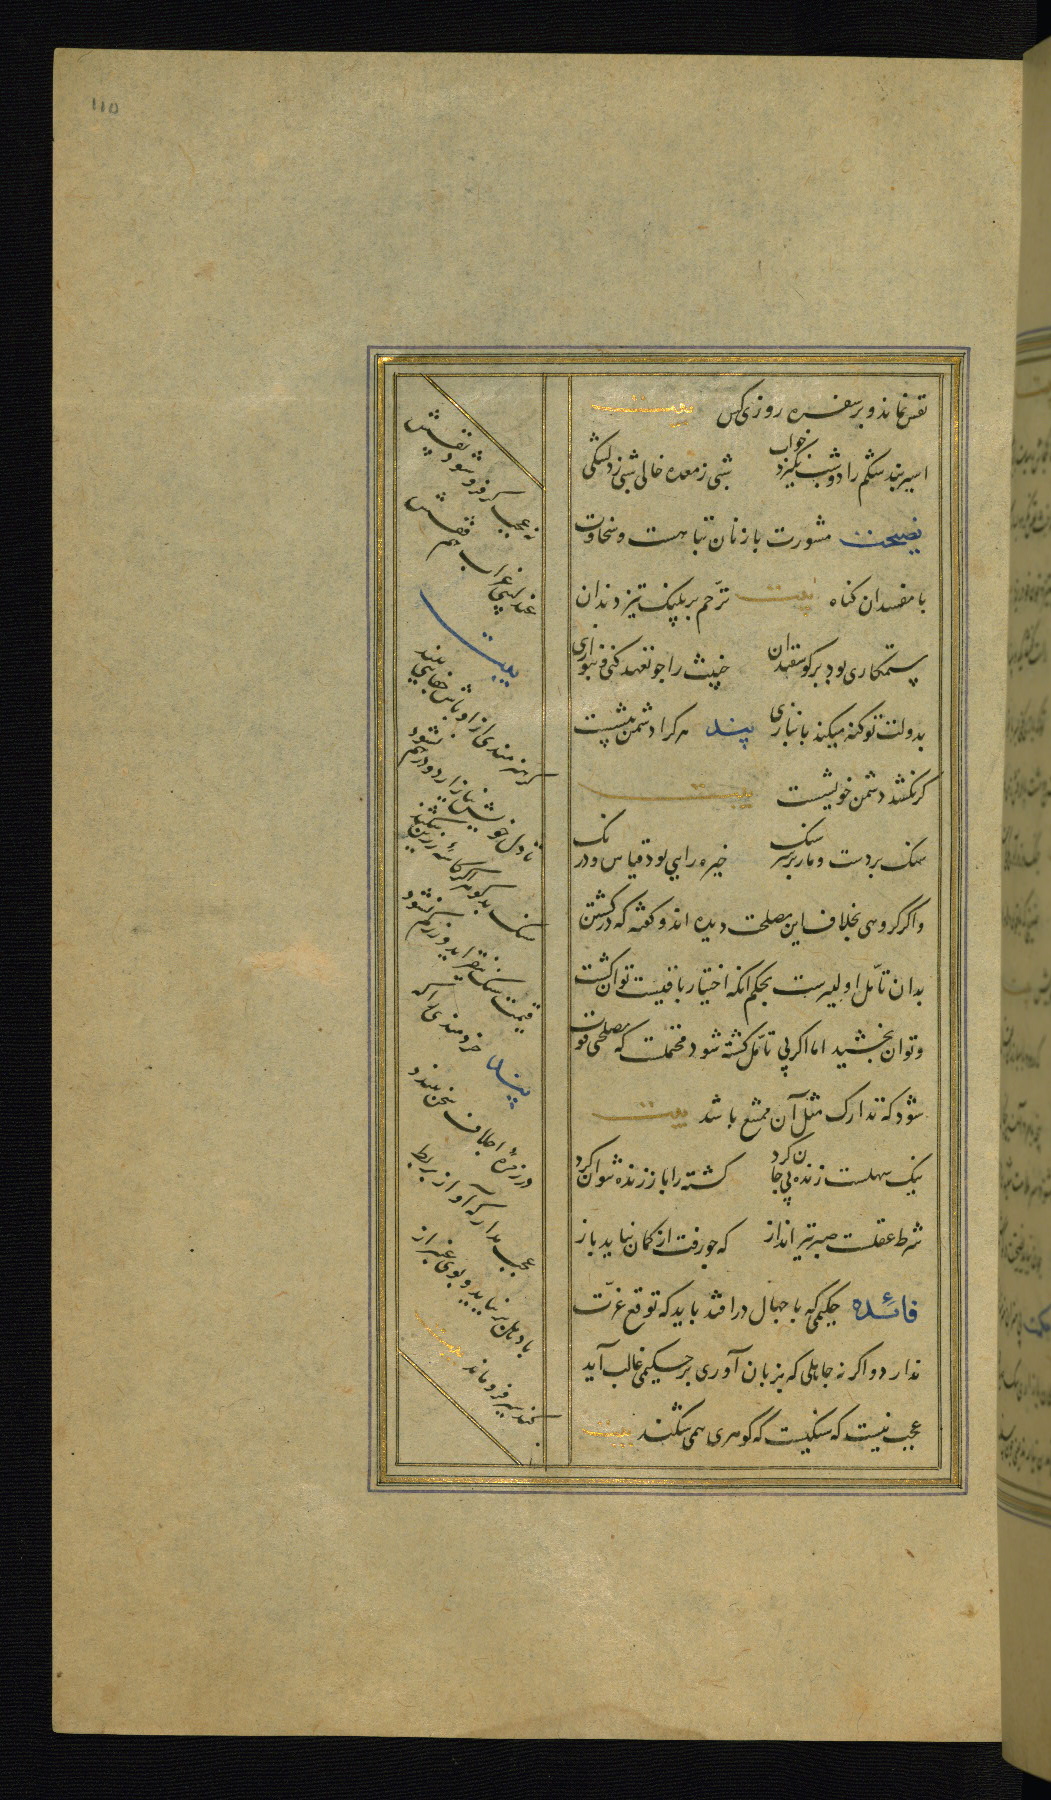 110
نفس نماند و بر سفره روزی کس بیت
اسیر بند شکم را دو شب نگیرد خواب شبی ز معده خالی شبی ز دلتنگی
نصیحت مشورت با زنان تباهست و سخاوت
با مفسدان کناه بیت ترحّم بر پلنک تیز دندان
ستمکاری بود بر کوسفندان خبیث را چو تعهد کنی و بنوازی
بدولت تو کنه میکند بانبازی پند هر کرا دشمن پیشست
کر نکشد دشمن خویشست بیت
سنک بر دست و مار بر سر سنک خیره رایی بود قیاس و درنک
و اکر کروهی بخلاف این مصلحت دیده اند و کفته که در کشتن
بندیان تأمّل اولیترست بحکم انکه اختیار باقیست توان کشت
و توان بخشید اما اکر بی تأمل کشته شود محتملست که مصلحتی فوت
شود که تدارک مثل آن ممتنع باشد بیت
نیک سهلست زنده بی جان کرد کشته را باز زنده نتوان کرد
شرط عقلست صبر تیر انداز که چو رفت از کمان نیاید باز
فائده حکیمی که با جهال در افتد باید که توقع عزّت
ندارد و اکر نه جاهلی که بزبان آوری بر حکیمی غالب آید
عجب نیست که سنکیست که کوهری همی شکند بیت
نه عجب کر فرو شود نفسش
عندلیبی غراب هم قفسش
بیت
کر هنرمندی از اوباش جفایی بیند
تا دل خویش نیازارد و درهم نشود
سنک بدکوهر اکر کاسه زرین شکند
قیمت سنک نیفزاید و زر کم نشود
پند خردمندی را که
در زمرهٔ اجلاف سخن ببندد
عجب مدار که آواز بربط
با دهل برنیاید و بوی عنبر از
کند سیر فرو ماند بیت